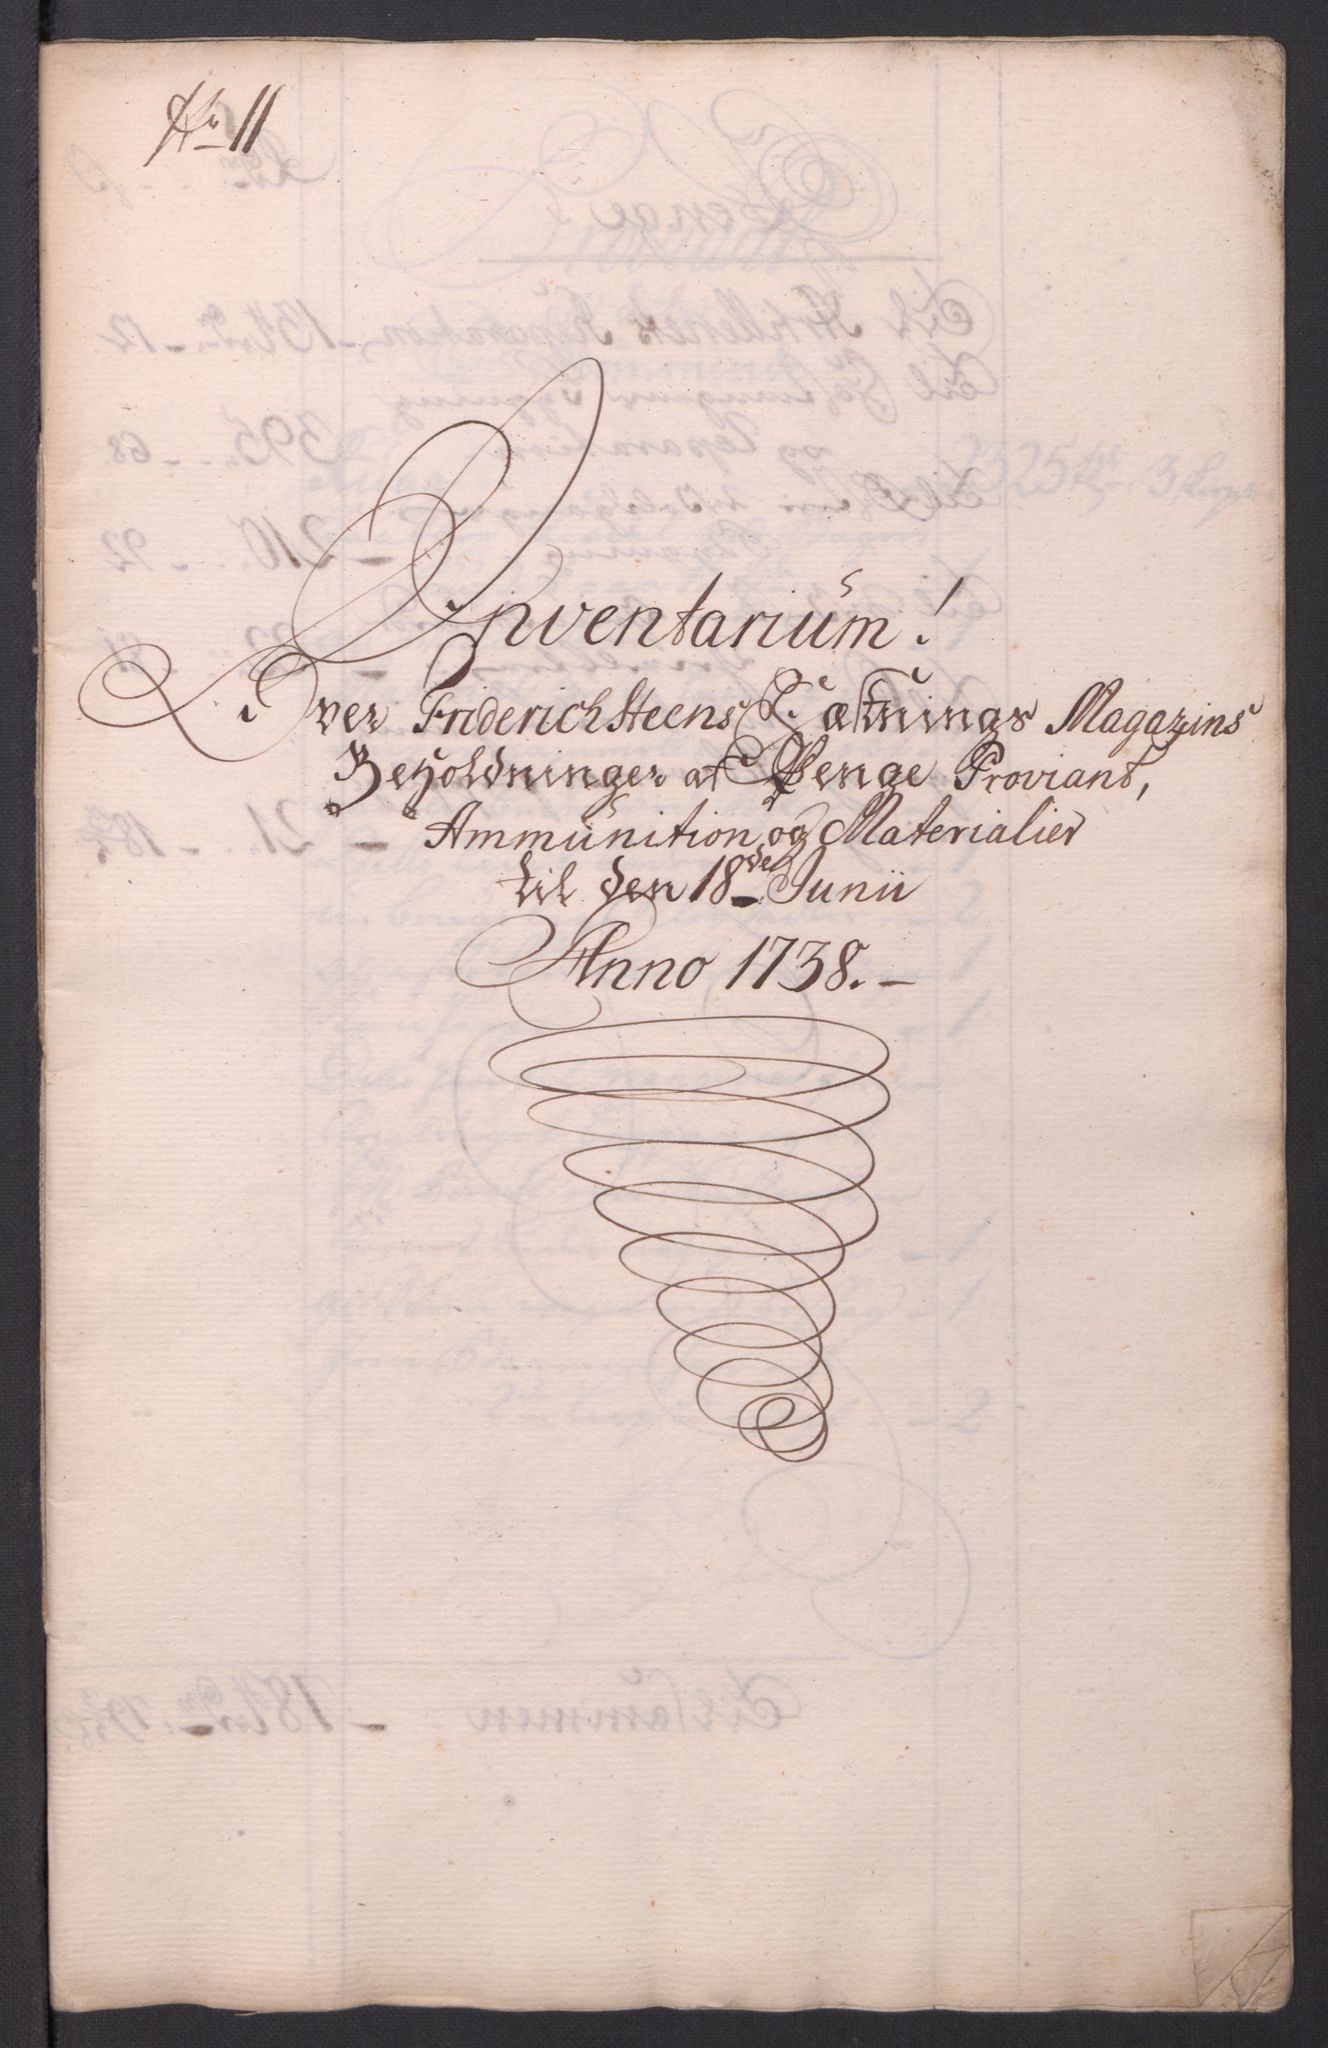 No 11
Inventarium!
Over Friderichsteens Fæstnings Magazins
Beholdninger af Penge Proviant,
Ammunition og Materialier
til den 18de Junii
Anno 1738.